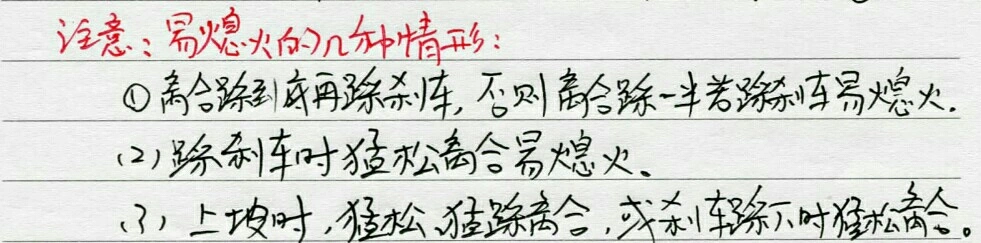 注意：易熄火的几种情形：
① 离合踩到底再踩刹车，否则离合踩一半若踩刹车易熄火．
(2) 踩刹车时猛松离合易熄火。
(3) 上坡时，猛松、猛踩离合，或刹车踩下时猛松离合。